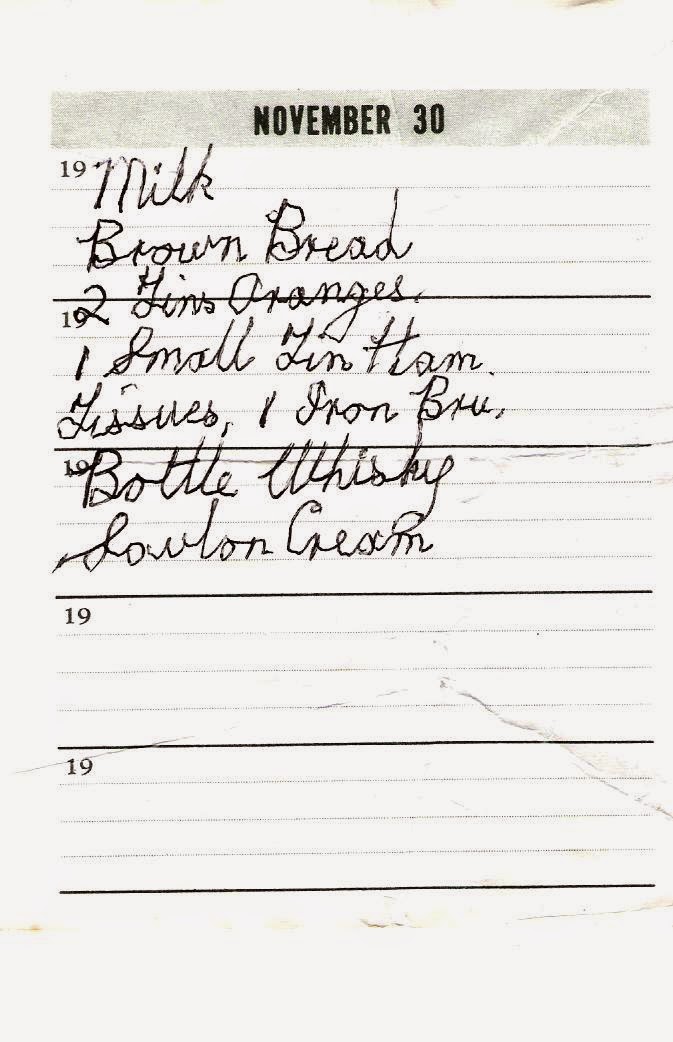 NOVEMBER 30
19 Milk
Brown Bread
2 Tins Oranges.
19
1 Small Tin Ham.
Tissues, 1 Iron Bru,
19 Bottle Whisky
Savlon Cream
19
19